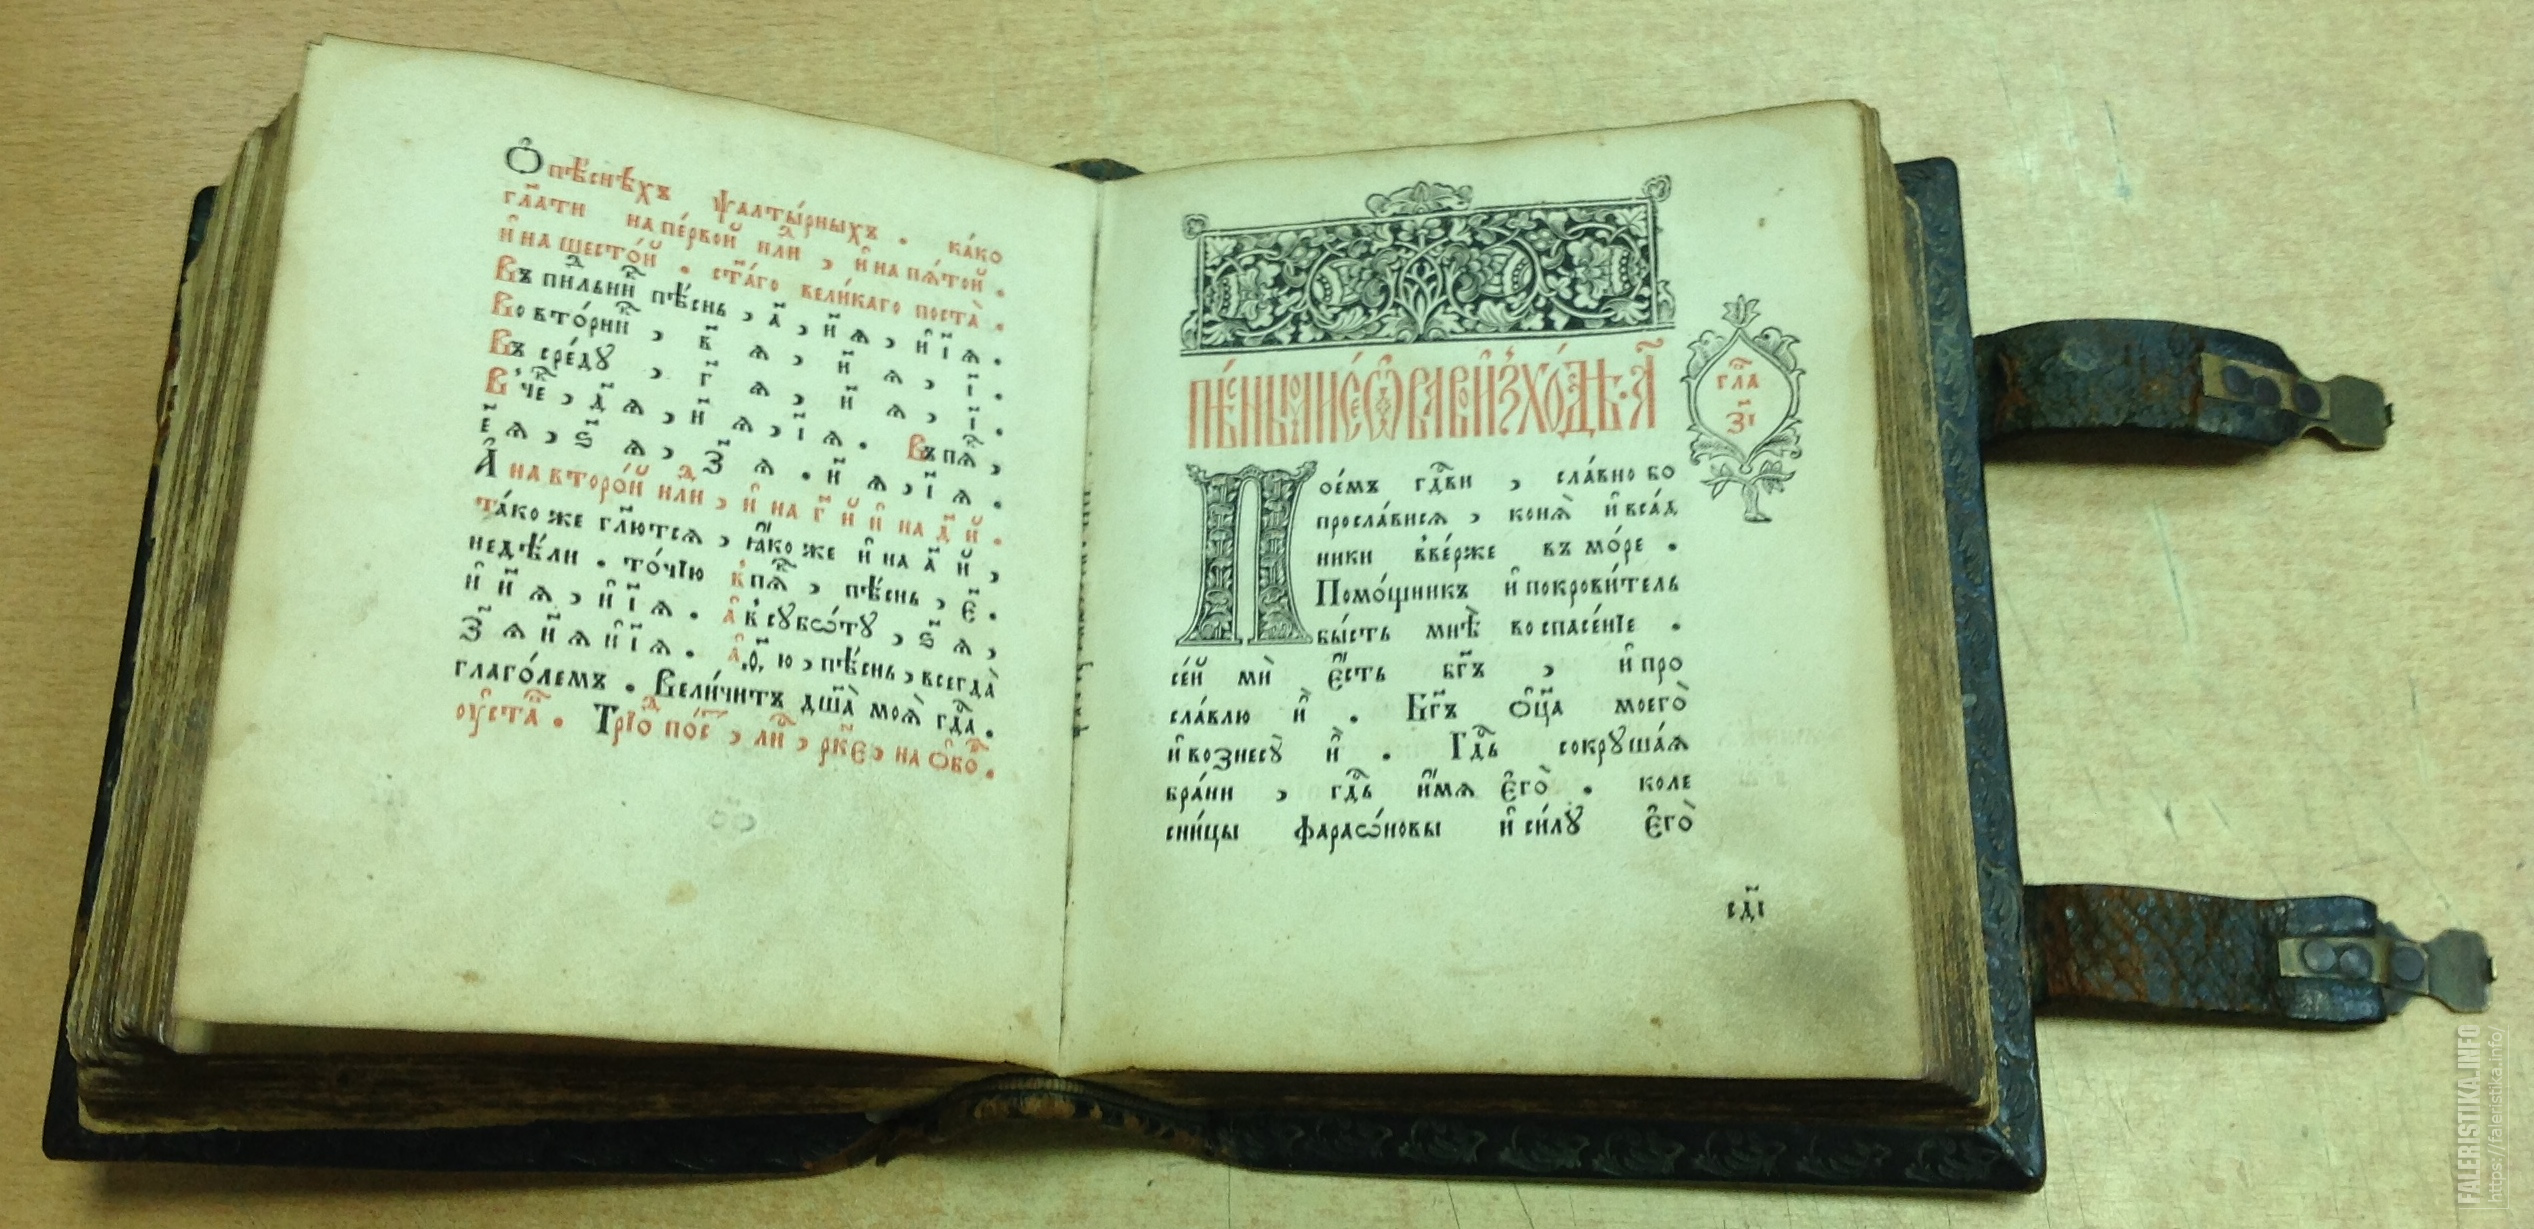 Ѻ҆ пѣ́снѣхъ ѱалты́рныхъ . ка́ко
гл҃ати на пе́рвой нлⷣи , и҆ на пѧ́той .
и҆ на шесто́й . ст҃а́го вели́каго поста̀ .
Въ пⷣильниⷦ҇ пѣ́снь , а҃ , и҃ѧ , и҆ і҃ѧ .
Во вто́рниⷦ҇ , в҃ ѧ , и҃ ѧ , і҃ .
Въ сре́дꙋ , г҃ ѧ , и҃ ѧ , і҃ .
В̾ чеⷦ҇ , д҃ ѧ , и҃ ѧ , і҃ ѧ . Въ пѧⷦ҇ ,
є҃ ѧ , ѕ҃ ѧ , з҃ ѧ . и҃ ѧ , і҃ ѧ .
А҆ на второ́й нлⷣи , и҆ на г҃ й и҆ на д҃ й .
та́ко же гл҃ютсѧ , ꙗ҆́ко же и҆ на а҃ й ,
недѣ́ли . то́чїю в̾ пѧⷦ҇ , пѣ́снь , є҃ .
и҆ и҃ ѧ , и҆ і҃ ѧ . а҆ в̾ сꙋбѡ́тꙋ , ѕ҃ ѧ ,
з҃ ѧ и҃ ѧ и҆ і҃ ѧ . а҆ .ѳ҃. ю , пѣ́снь , всегда̀
глаго́лемъ . Вели́читъ дш҃а̀ моѧ̀ гдⷭ҇а .
ᲂу҆стаⷡ҇ . Трїоⷣ по́с , лиⷭ҇ , рк҃є , на ѻ҆боⷬ҇ .
ПѢ́СНЬ МОИСЕ́ѠВА ВО И҆ЗХО́ДѢ · А҃
глⷡ҇а
з҃і
Пое́мъ гдⷭ҇ви , сла́вно бо
просла́висѧ , конѧ̀ и҆ вса́д
ники вве́рже въ мо́ре .
Помо́щникъ и҆ покрови́тель
бы́сть мнѣ̀ во спасе́нїе .
се́й ми̂ є҆́сть бг҃ъ , и҆ про
сла́влю и҆̀ . Бг҃ъ ѻ҆ц҃а моего̀
и҆ вознесꙋ̀ и҆̀ . Гдⷭ҇ь сокрꙋша́ѧ
бра́ни , гдⷭ҇ь и҆́мѧ є҆го̀ . коле
сни́цы фараѡ́новы и҆ си́лꙋ є҆го̀
сд҃і
FALERISTIKA.INFO
https://faleristika.info/